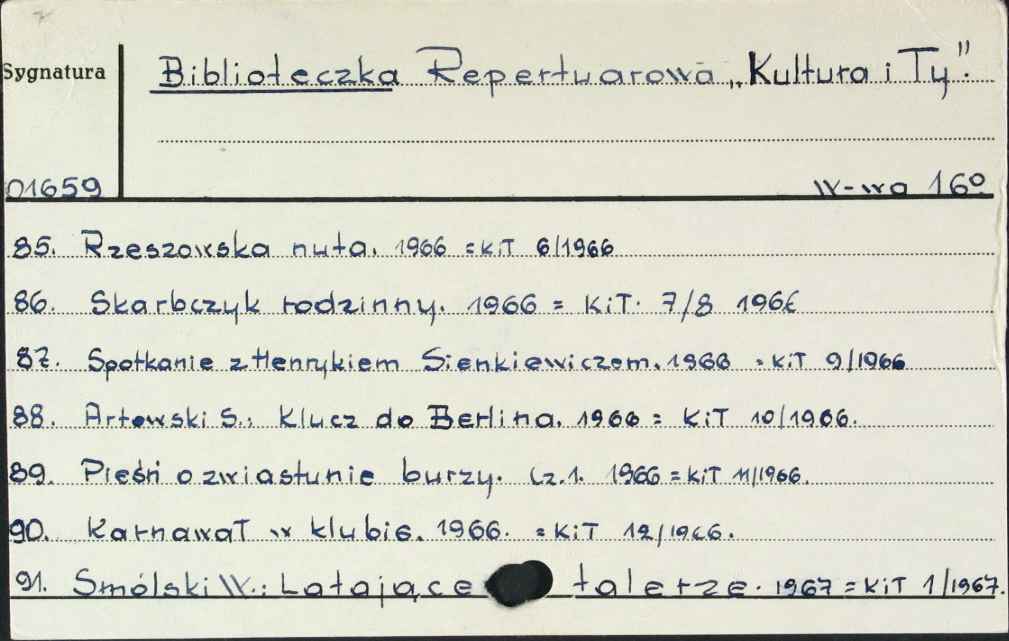 Sygnatura
Biblioteczka Repertuarowa „Kultura i Ty".
01659
W-wa 16°
85. Rzeszowska nuta. 1966 = KiT 6/1966
86. Skarbczyk rodzinny. 1966 = KiT. 7/8 1966
87. Spotkanie z Henrykiem Sienkiewiczem. 1966 = KiT 9/1966
88. Artowski S.: Klucz do Berlina. 1966 = KiT 10/1966.
89. Pieśń o zwiastunie burzy. Cz.1. 1966 = KiT 11/1966.
90. Karnawał w klubie. 1966. = KiT 12/1966.
91. Smólski W.: Latające talerze. 1967 = KiT 1/1967.